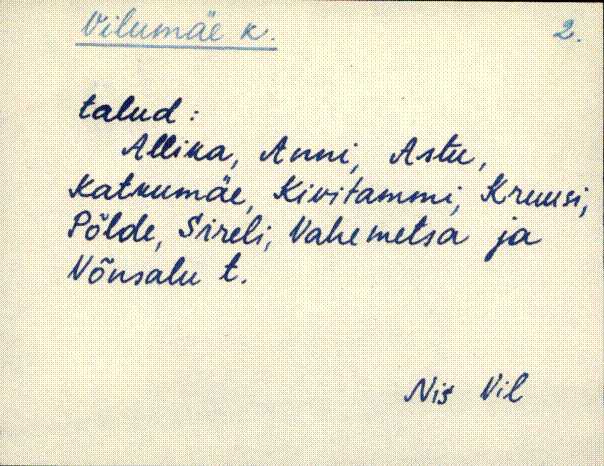 Vilumäe k. 2.
talud:
Allika, Anni, Astu,
Katkumäe, Kivitammi, Kruusi,
Põlde, Sireli, Vahemetsa ja
Võnsalu t.
Nis Vil